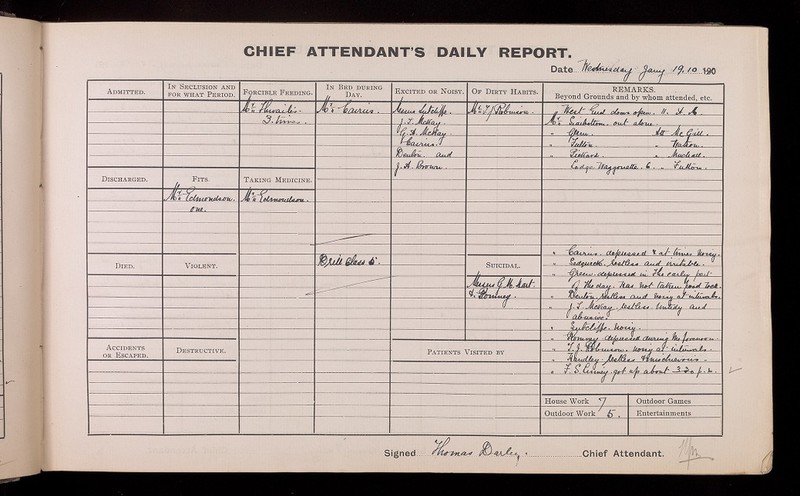 CHIEF ATTENDANT'S DAILY REPORT.
Date Wednesday Jany 19, 10 190
ADMITTED.
IN SECLUSION AND FOR WHAT PERIOD.
FORCIBLE FEEDING.
Mr Thwaites.
3. times.
IN BED DURING DAY.
Mr Cairns.
EXCITED OR NOISY.
Sutcliffe.
J. F. McKay
G. H. McKay
Cairns.
Denton. and
J. H. Brown.
OF DIRTY HABITS.
Mr T J Robinson.
REMARKS.
Beyond Grounds and by whom attended, etc.
West End down open.
Mr out alone
" Green. Mc Gill.
" Tatton
"
Lodge Waggonette. 6. " Tutton.
DISCHARGED.
FITS.
Mr Edmondson.
one.
TAKING MEDICINE.
Mr Edmondson.
Drill Class 5.
DIED.
VIOLENT.
SUICIDAL.
G. M. Hart.
Romney.
" Cairns. depressed & at times noisy.
" Sedgwick. restless and irritable.
" Green. depressed in the early part
of the day. Has not taken food well.
" Denton. restless and noisy at intervals.
" J. F. McKay restless untidy and
abusive.
" Sutcliffe. noisy.
" Romney depressed during the forenoon.
" T. J. Robinson. noisy at intervals.
" restless & mischievous.
" got up about 3-20 p.m.
ACCIDENTS OR ESCAPED.
DESTRUCTIVE.
PATIENTS VISITED BY
House Work 7
Outdoor Games
Outdoor Work 5.
Entertainments
Signed Thomas Darley. Chief Attendant.